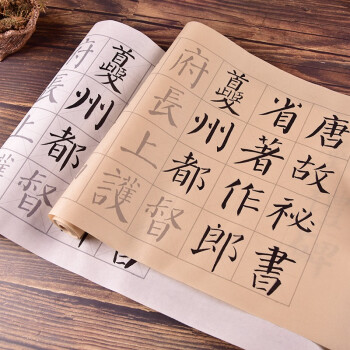 唐故祕書
省著作郎
夔州都督
府長上護
夔州都督
府長上護